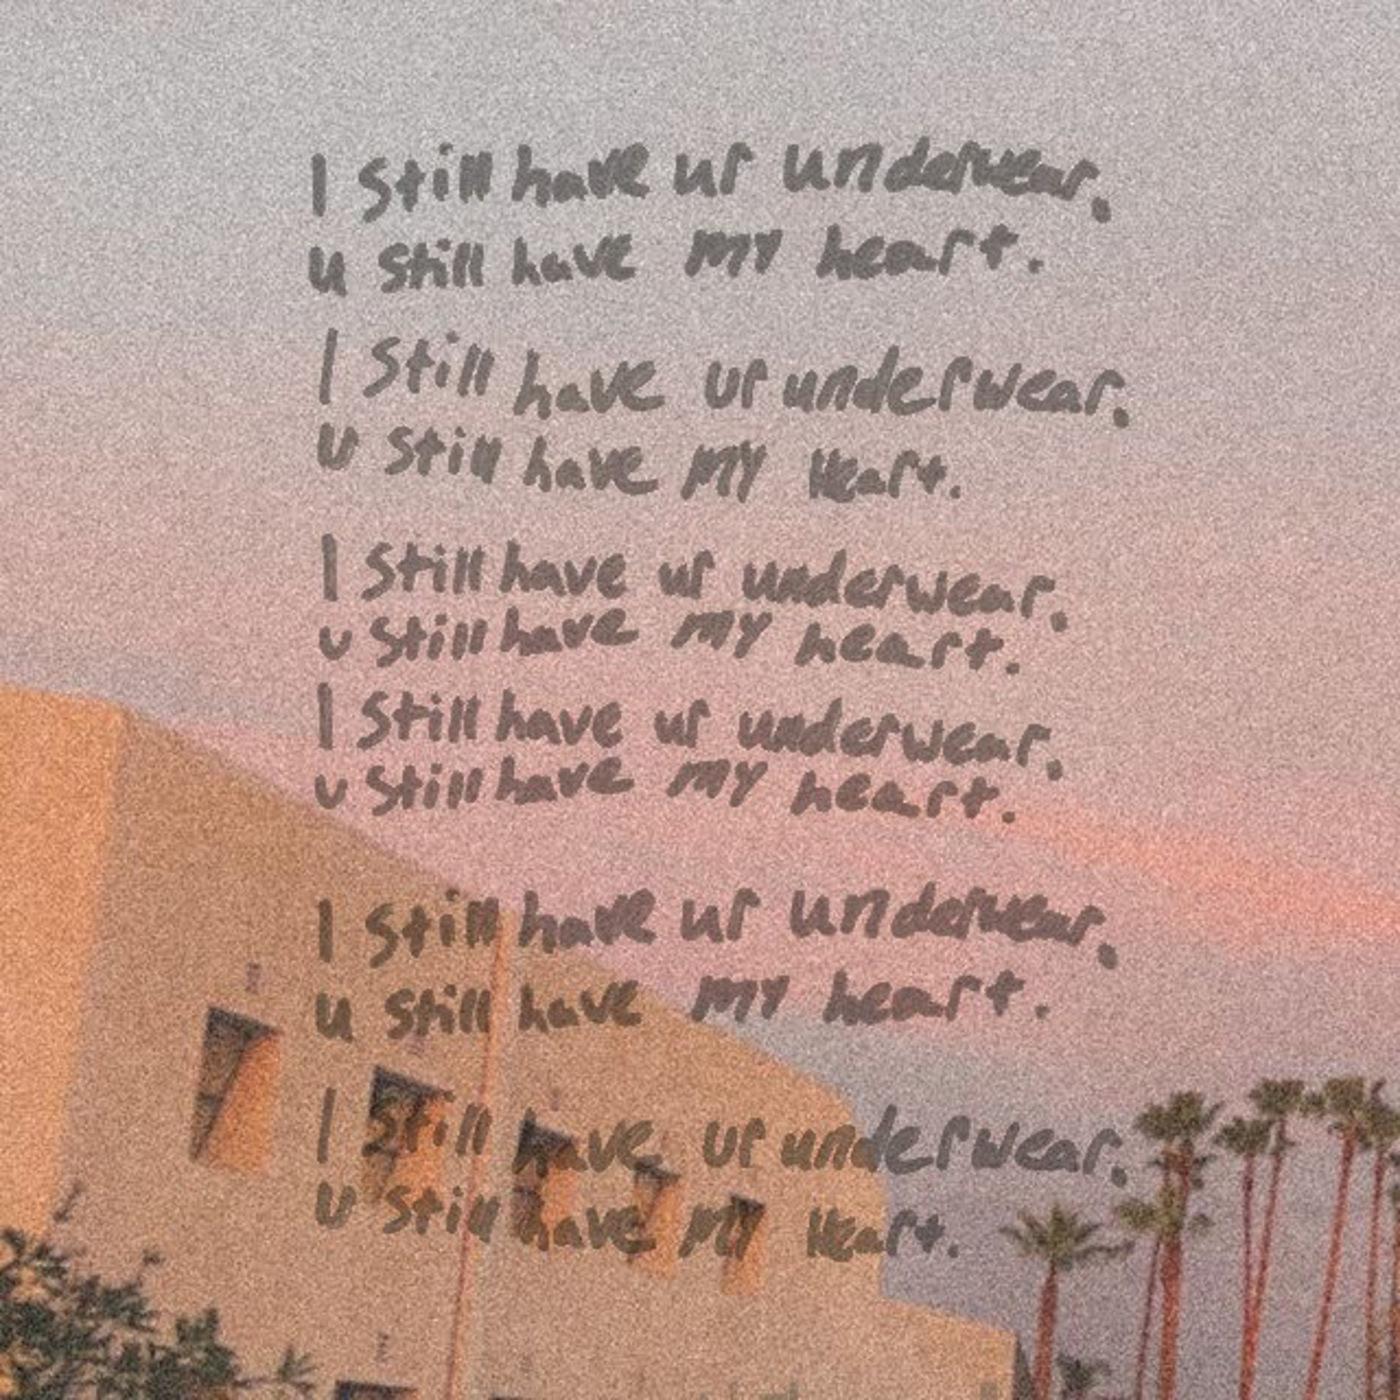 I still have ur underwear.
u still have my heart.
I still have ur underwear.
u still have my heart.
I still have ur underwear.
u still have my heart.
I still have ur underwear.
u still have my heart.
I still have ur underwear.
u still have my heart.
I still have ur underwear.
u still have my heart.